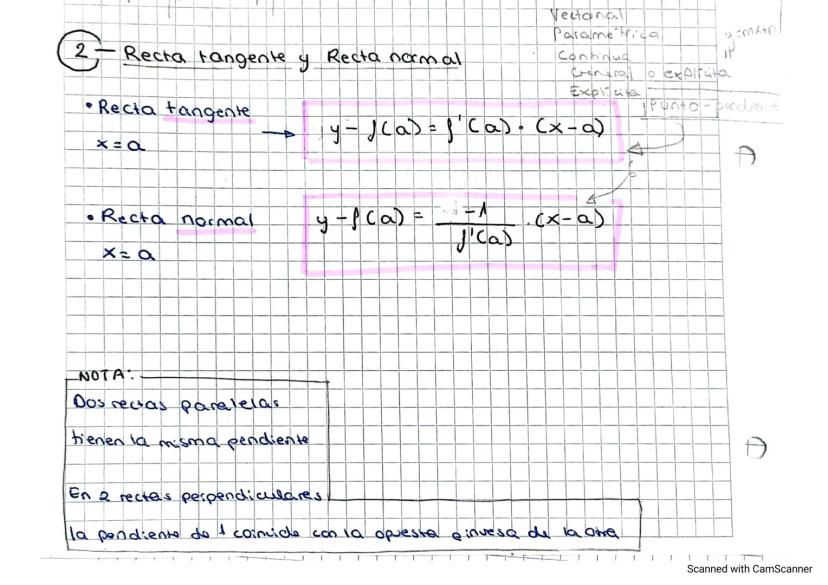 Vectorial
Paramétrica
Continua
General o explícita
Explícita
y=mx+n
Punto-pendiente
2 - Recta tangente y Recta normal
• Recta tangente
x=a
→ y-f(a)=f'(a)·(x-a)
• Recta normal
x=a
y-f(a)= -1/f'(a) ·(x-a)
NOTA:
Dos rectas paralelas
tienen la misma pendiente
En 2 rectas perpendiculares
la pendiente de 1 coincide con la opuesta e inversa de la otra
Scanned with CamScanner